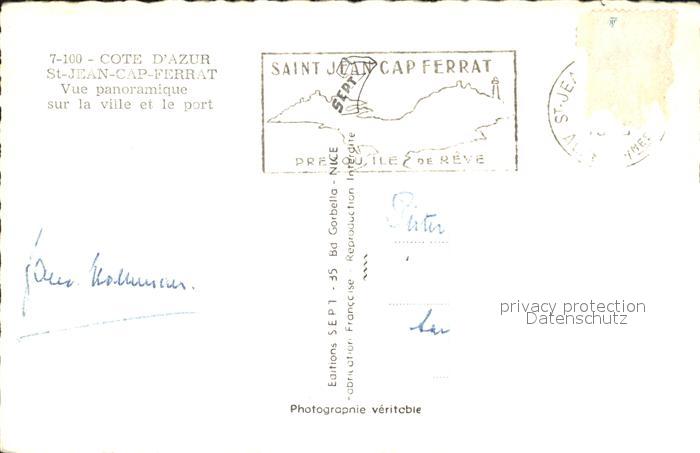 7-100 - COTE D'AZUR
St-JEAN-CAP-FERRAT
Vue panoramique
sur la ville et le port
SAINT JEAN CAP FERRAT
SEPT
PRESQU'ILE DE RÊVE
ST-JEA
Editions SEPT - 35 Bd Gorbella - NICE
Fabrication Française - Reproduction Interdite
privacy protection
Datenschutz
Photographie véritable